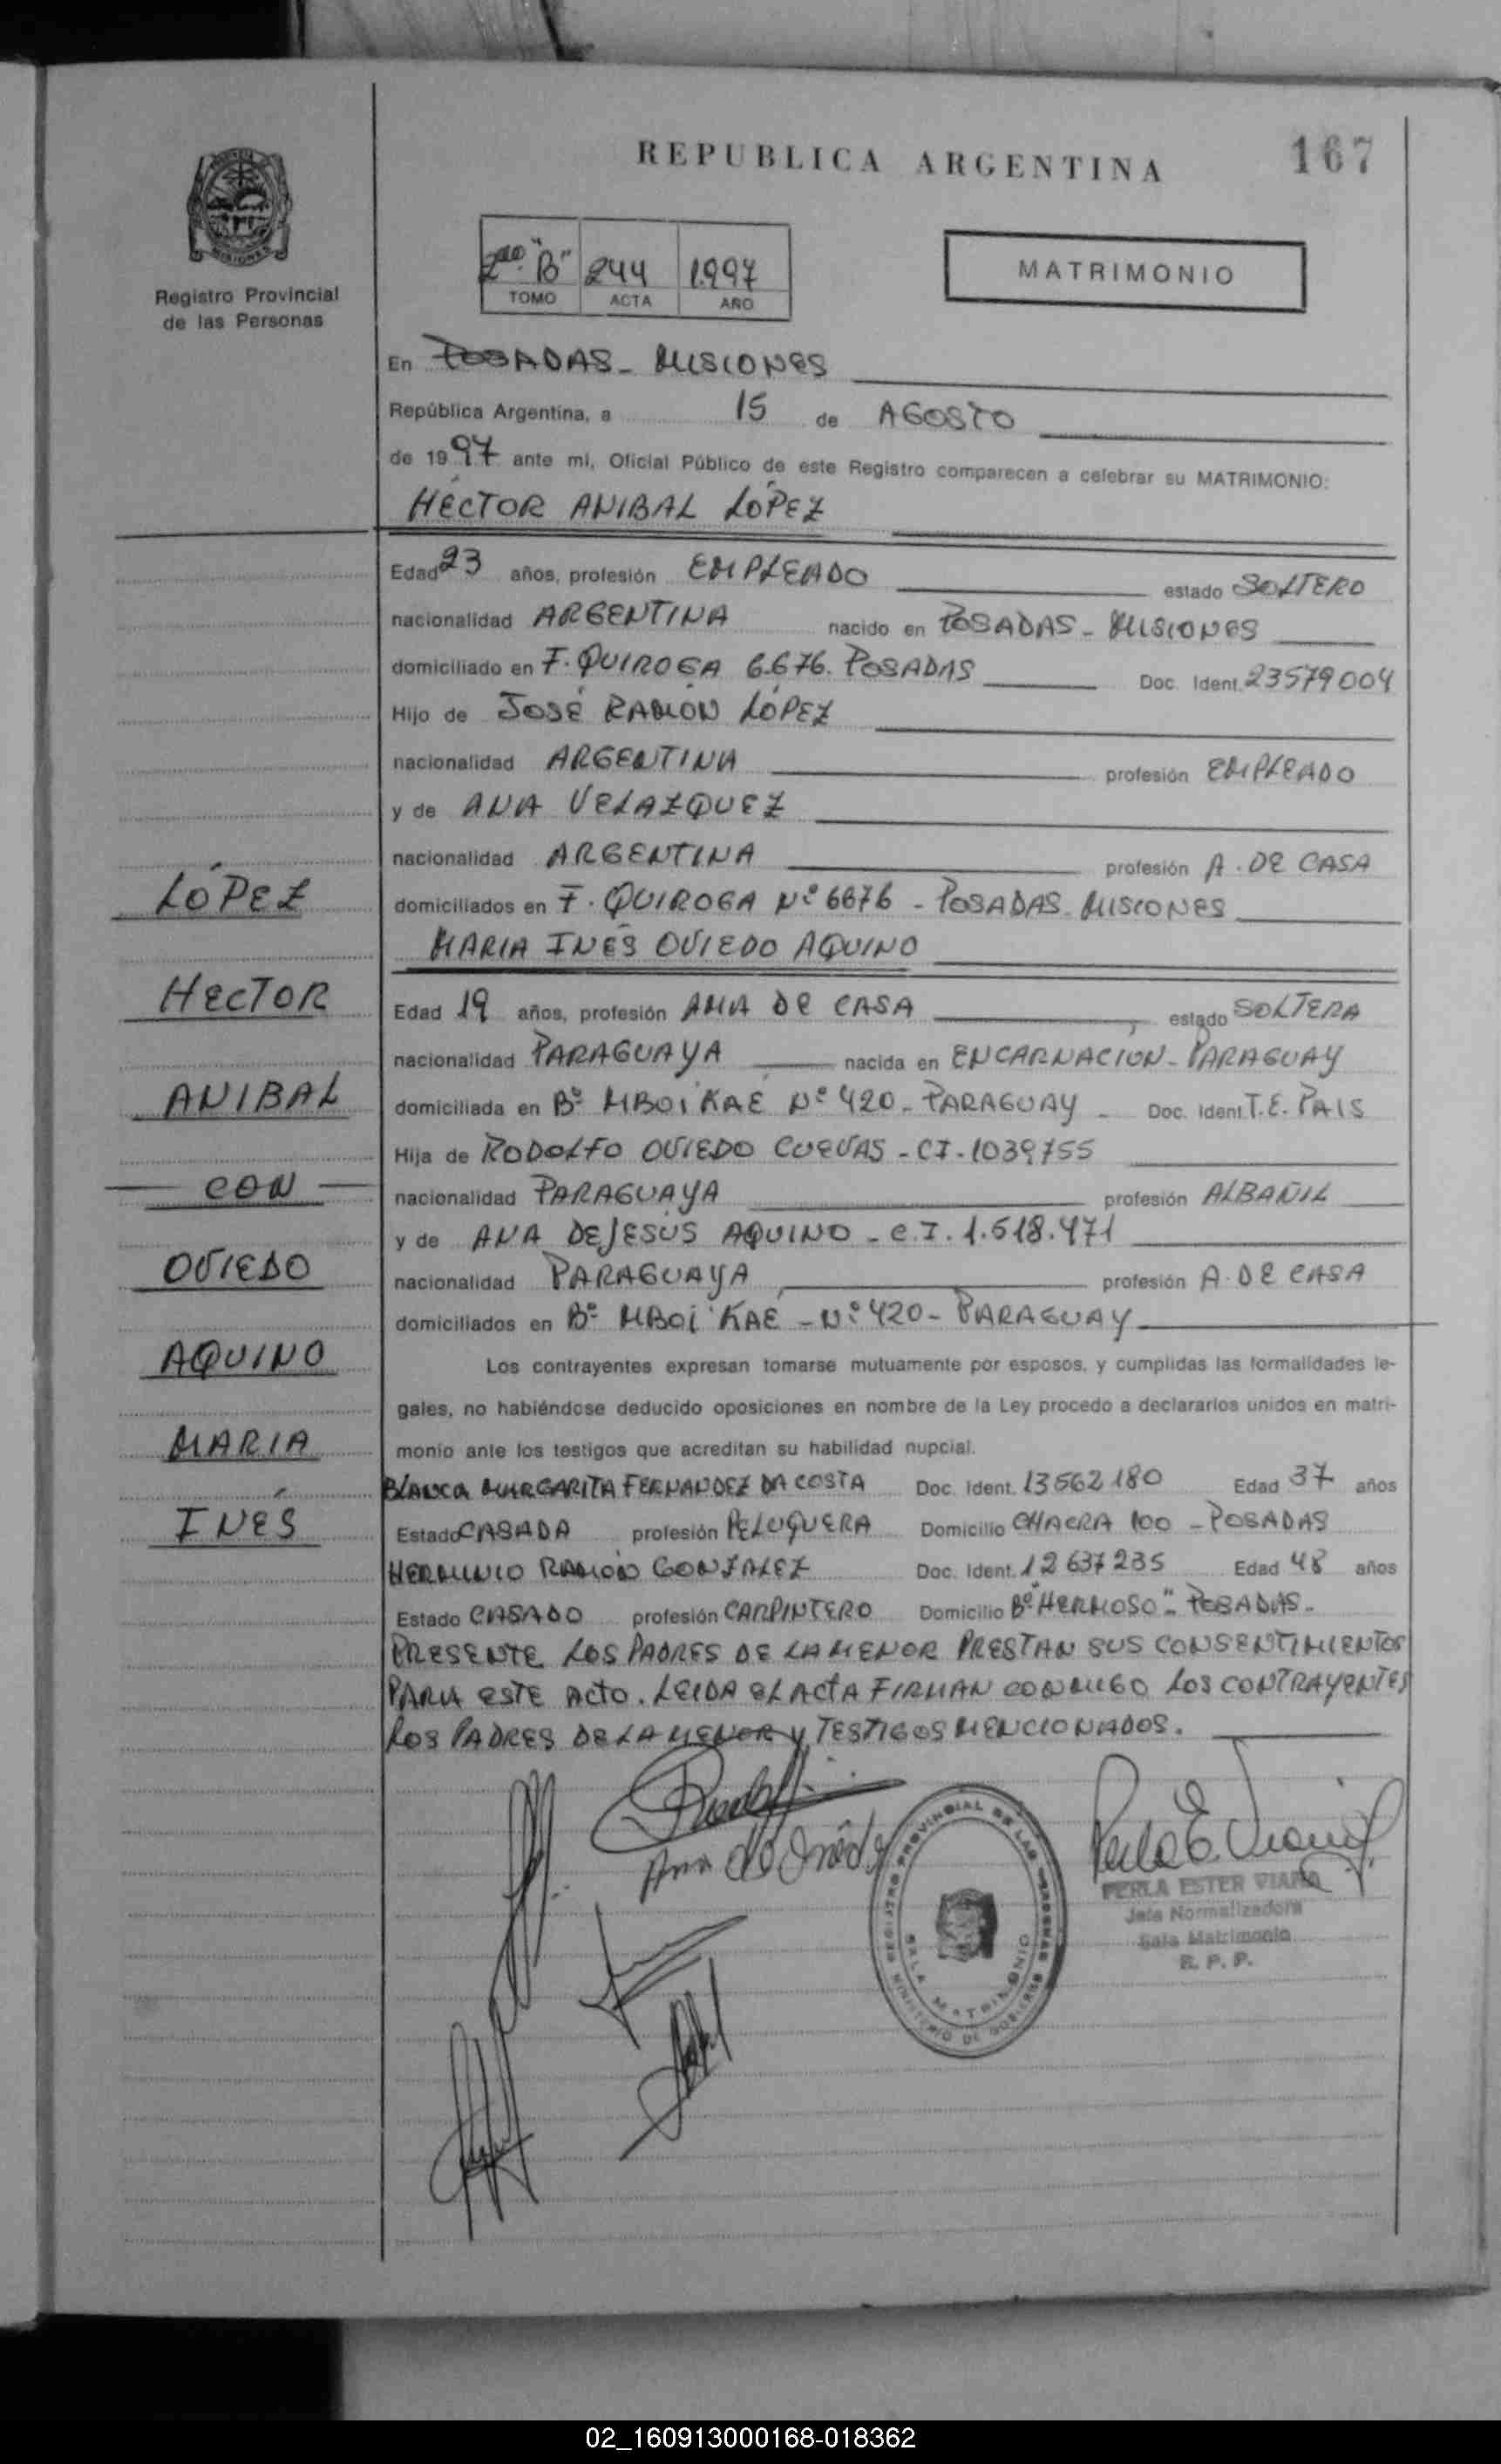 REPUBLICA ARGENTINA
167
MISIONES
Registro Provincial
de las Personas
2do "B" 244 1.997
TOMO ACTA AÑO
MATRIMONIO
En POSADAS - MISIONES
República Argentina, a 15 de AGOSTO
de 1997 ante mi, Oficial Público de este Registro comparecen a celebrar su MATRIMONIO:
HÉCTOR ANIBAL LÓPEZ
Edad 23 años, profesión EMPLEADO estado SOLTERO
nacionalidad ARGENTINA nacido en POSADAS - MISIONES
domiciliado en F. QUIROGA 6.676. POSADAS Doc. Ident. 23579004
Hijo de JOSÉ RAMÓN LÓPEZ
nacionalidad ARGENTINA profesión EMPLEADO
y de ANA VELAZQUEZ
nacionalidad ARGENTINA profesión A. DE CASA
domiciliados en F. QUIROGA Nº 6676 - POSADAS - MISIONES
MARIA INÉS OVIEDO AQUINO
Edad 19 años, profesión AMA DE CASA estado SOLTERA
nacionalidad PARAGUAYA nacida en ENCARNACIÓN - PARAGUAY
domiciliada en Bº MBOI KAÉ Nº 420 - PARAGUAY - Doc. Ident. T.E. PAIS
Hija de RODOLFO OVIEDO CUEVAS - CI - 1039755
nacionalidad PARAGUAYA profesión ALBAÑIL
y de ANA DE JESÚS AQUINO - C.I. 1.518.471
nacionalidad PARAGUAYA profesión A. DE CASA
domiciliados en Bº MBOI KAÉ - Nº 420 - PARAGUAY
LÓPEZ
HECTOR
ANIBAL
CON
OVIEDO
AQUINO
MARIA
INÉS
Los contrayentes expresan tomarse mutuamente por esposos, y cumplidas las formalidades le-
gales, no habiéndose deducido oposiciones en nombre de la Ley procedo a declararlos unidos en matri-
monio ante los testigos que acreditan su habilidad nupcial.
BLANCA MARGARITA FERNANDEZ DA COSTA Doc. Ident. 13562180 Edad 37 años
Estado CASADA profesión PELUQUERA Domicilio CHACRA 100 - POSADAS
HERMINIO RAMÓN GONZALEZ Doc. Ident. 12637235 Edad 48 años
Estado CASADO profesión CARPINTERO Domicilio Bº "HERMOSO" - POSADAS -
PRESENTE LOS PADRES DE LA MENOR PRESTAN SUS CONSENTIMIENTOS
PARA ESTE ACTO. LEIDA EL ACTA FIRMAN CONMIGO LOS CONTRAYENTES
LOS PADRES DE LA MENOR Y TESTIGOS MENCIONADOS.
REGISTRO PROVINCIAL DE LAS PERSONAS
SALA MATRIMONIO
MINISTERIO DE GOBIERNO
PERLA ESTER VIANA
Jefa Normalizadora
Sala Matrimonio
R. P. P.
02_160913000168-018362